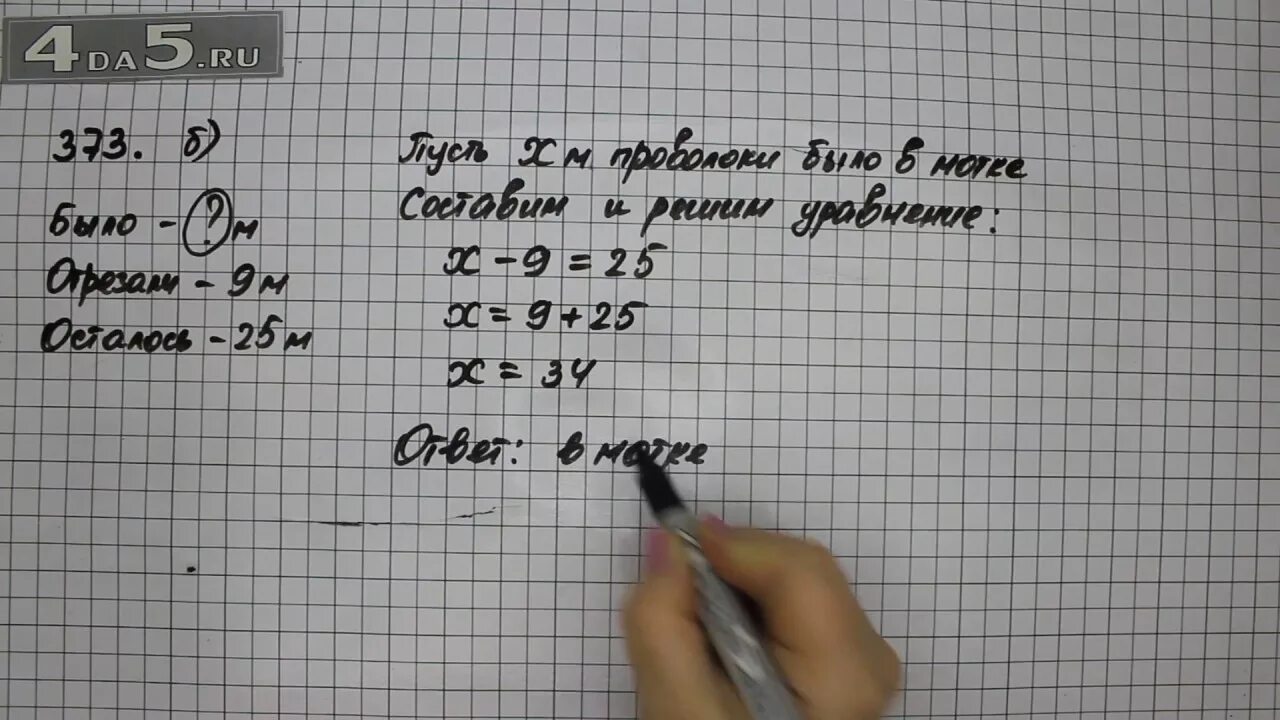 4DA5.RU
373. б)
Было - ? м
Отрезали - 9 м
Осталось - 25 м
Пусть х м проволоки было в мотке
Составим и решим уравнение:
х - 9 = 25
х = 9 + 25
х = 34
Ответ: в мотке